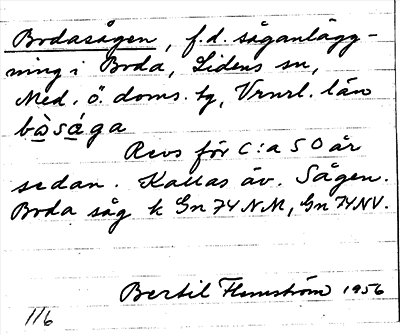 Bodasågen, f.d. såganlägg-
ning i Boda, Lidens sn,
Med. ö. doms. tg, Vrnrl. län
bòsága
Revs för c:a 50 år
sedan. Kallas äv. Sågen.
Boda såg k Gn 74 NM, Gn 74 NV.
Bertil Flemström 1956
116